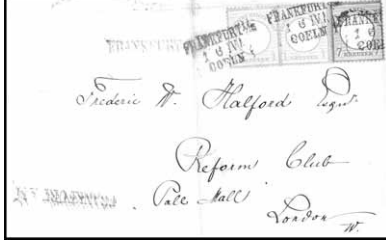 FRANKFURT
1 6 IV
COELN
FRANKFURT
1 6 IV
COELN
FRANKF
1 6
7
Frederic W. Halford Esqre
Reform Club
Pale Mall
London
W.